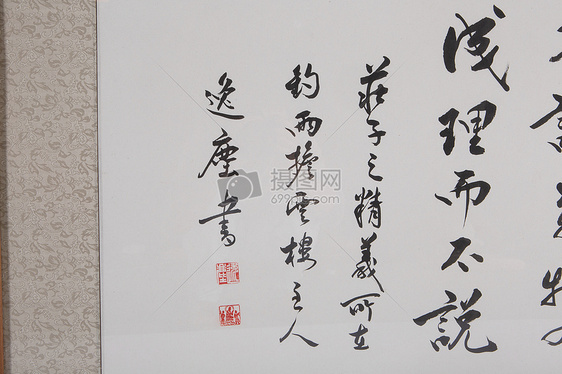 成理而不說
莊子之精義所在
釣雨擔雲樓主人
逸塵書
摄图网